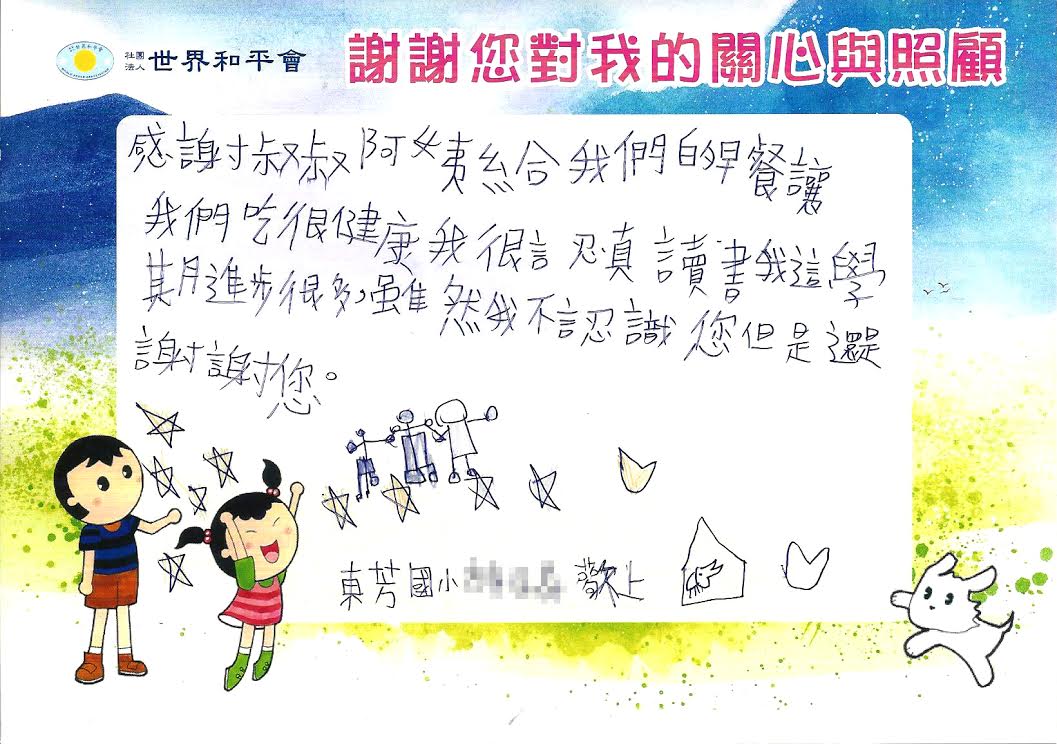 社團法人 世界和平會
謝謝您對我的關心與照顧
感謝叔叔阿姨給我們的早餐讓
我們吃很健康我很認真讀書我這學
期進步很多,雖然我不認識您但是還是
謝謝您。
東芳國小 敬上